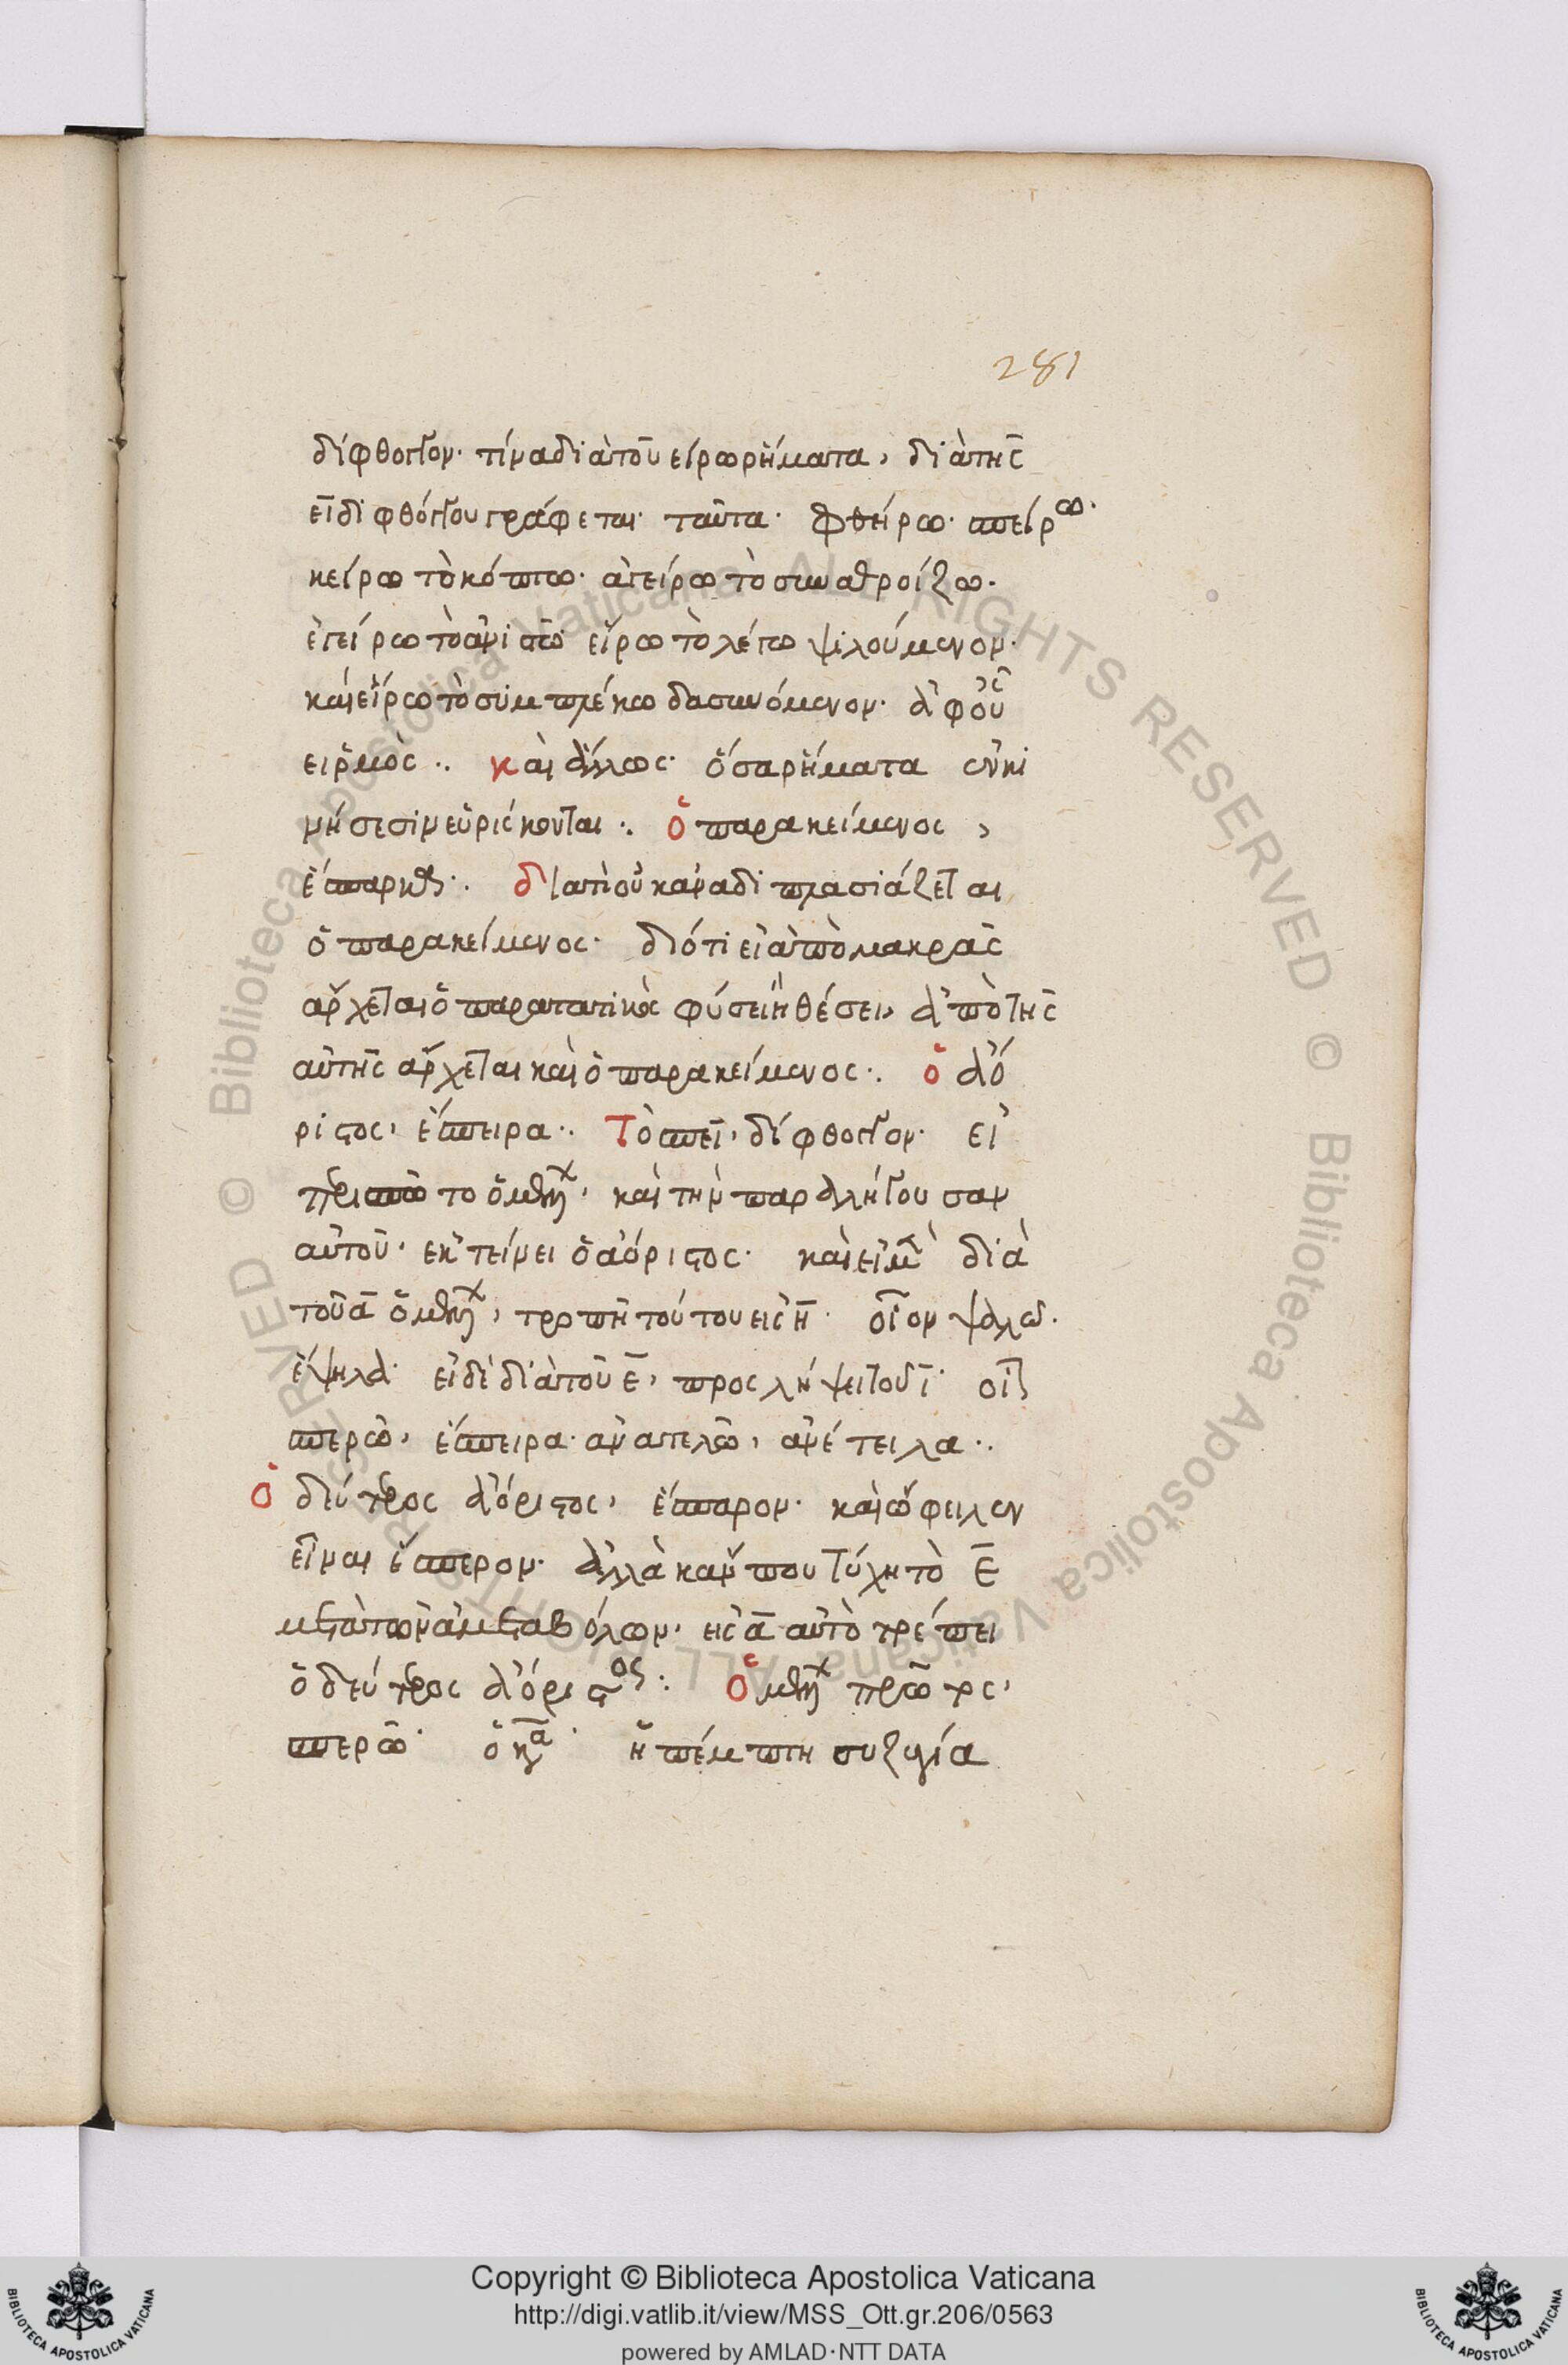 281
δίφθογγον· τίνα διὰ τοῦ είρω ρήματα, διὰ τῆς
ει διφθόγγου γράφεται· ταῦτα· φθείρω· σπείρω·
κείρω τὸ κόπτω· ἀγείρω τὸ συναθροίζω·
ἐγείρω τὸ ἀνιστῶ· εἴρω τὸ λέγω ψιλούμενον·
καὶ εἵρω τὸ συμπλέκω δασυνόμενον· ἀφ' οὗ
εἱρμός·. καὶ ἄλλως· ὅσα ρήματα ἐν κι
νήσεσιν εὑρίσκονται·. ὁ παρακείμενος,
ἔσπαρκα·. διατί οὐκ ἀναδιπλασιάζεται
ὁ παρακείμενος· διότι εἰ ἀπὸ μακρᾶς
ἄρχεται ὁ παρατατικὸς φύσει ἢ θέσει, ἀπὸ τῆς
αὐτῆς ἄρχεται καὶ ὁ παρακείμενος·. ὁ ἀό
ριστος, ἔσπειρα·. Τὸ σπει, δίφθογγον· εἰ
περισπῶτο ὁ μέλλων, καὶ τὴν παραλήγουσαν
αὐτοῦ· ἐκτείνει ὁ ἀόριστος· καὶ εἰ μὲν διὰ
τοῦ α ὁ μέλλων, τροπῆ τούτου εἰς η· οἷον ψαλῶ·
ἔψηλα· εἰ δὲ διὰ τοῦ ε, προσλήψει τοῦ ι· οἷον
σπερῶ, ἔσπειρα· ἀνατελῶ, ἀνέτειλα·.
Ὁ δεύτερος ἀόριστος, ἔσπαρον· καὶ ὤφειλεν
εἶναι ἔσπερον· ἀλλὰ κἄν που τύχη τὸ ε
μετὰ τῶν ἀμεταβόλων, εἰς α αὐτὸ τρέπει
ὁ δεύτερος ἀόριστος: Ὁ μέλλων πρῶτος,
σπερῶ· ὁ κανὼν α· ἡ πέμπτη συζυγία
Copyright © Biblioteca Apostolica Vaticana
http://digi.vatlib.it/view/MSS_Ott.gr.206/0563
powered by AMLAD·NTT DATA